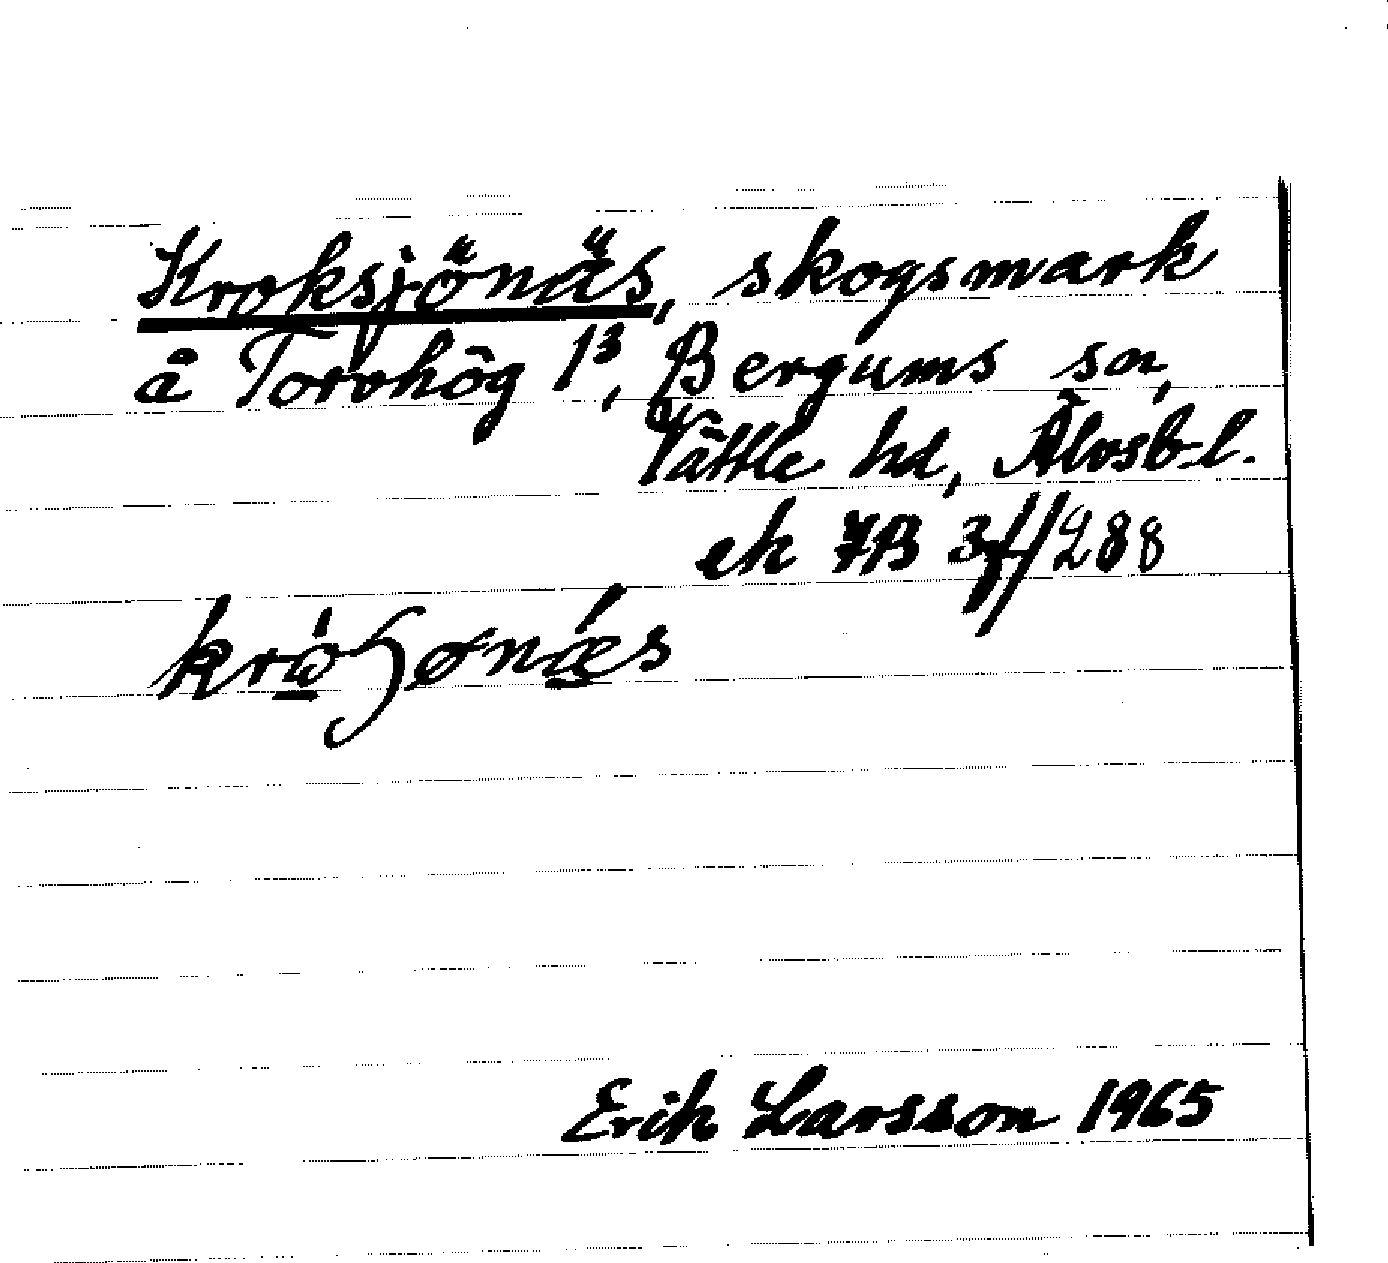 Kroksjönäs, skogsmark
å Torvhög 1³, Bergums sn,
Vättle hd, Älvsb. l.
ek 7B 3f/288
Erik Larsson 1965